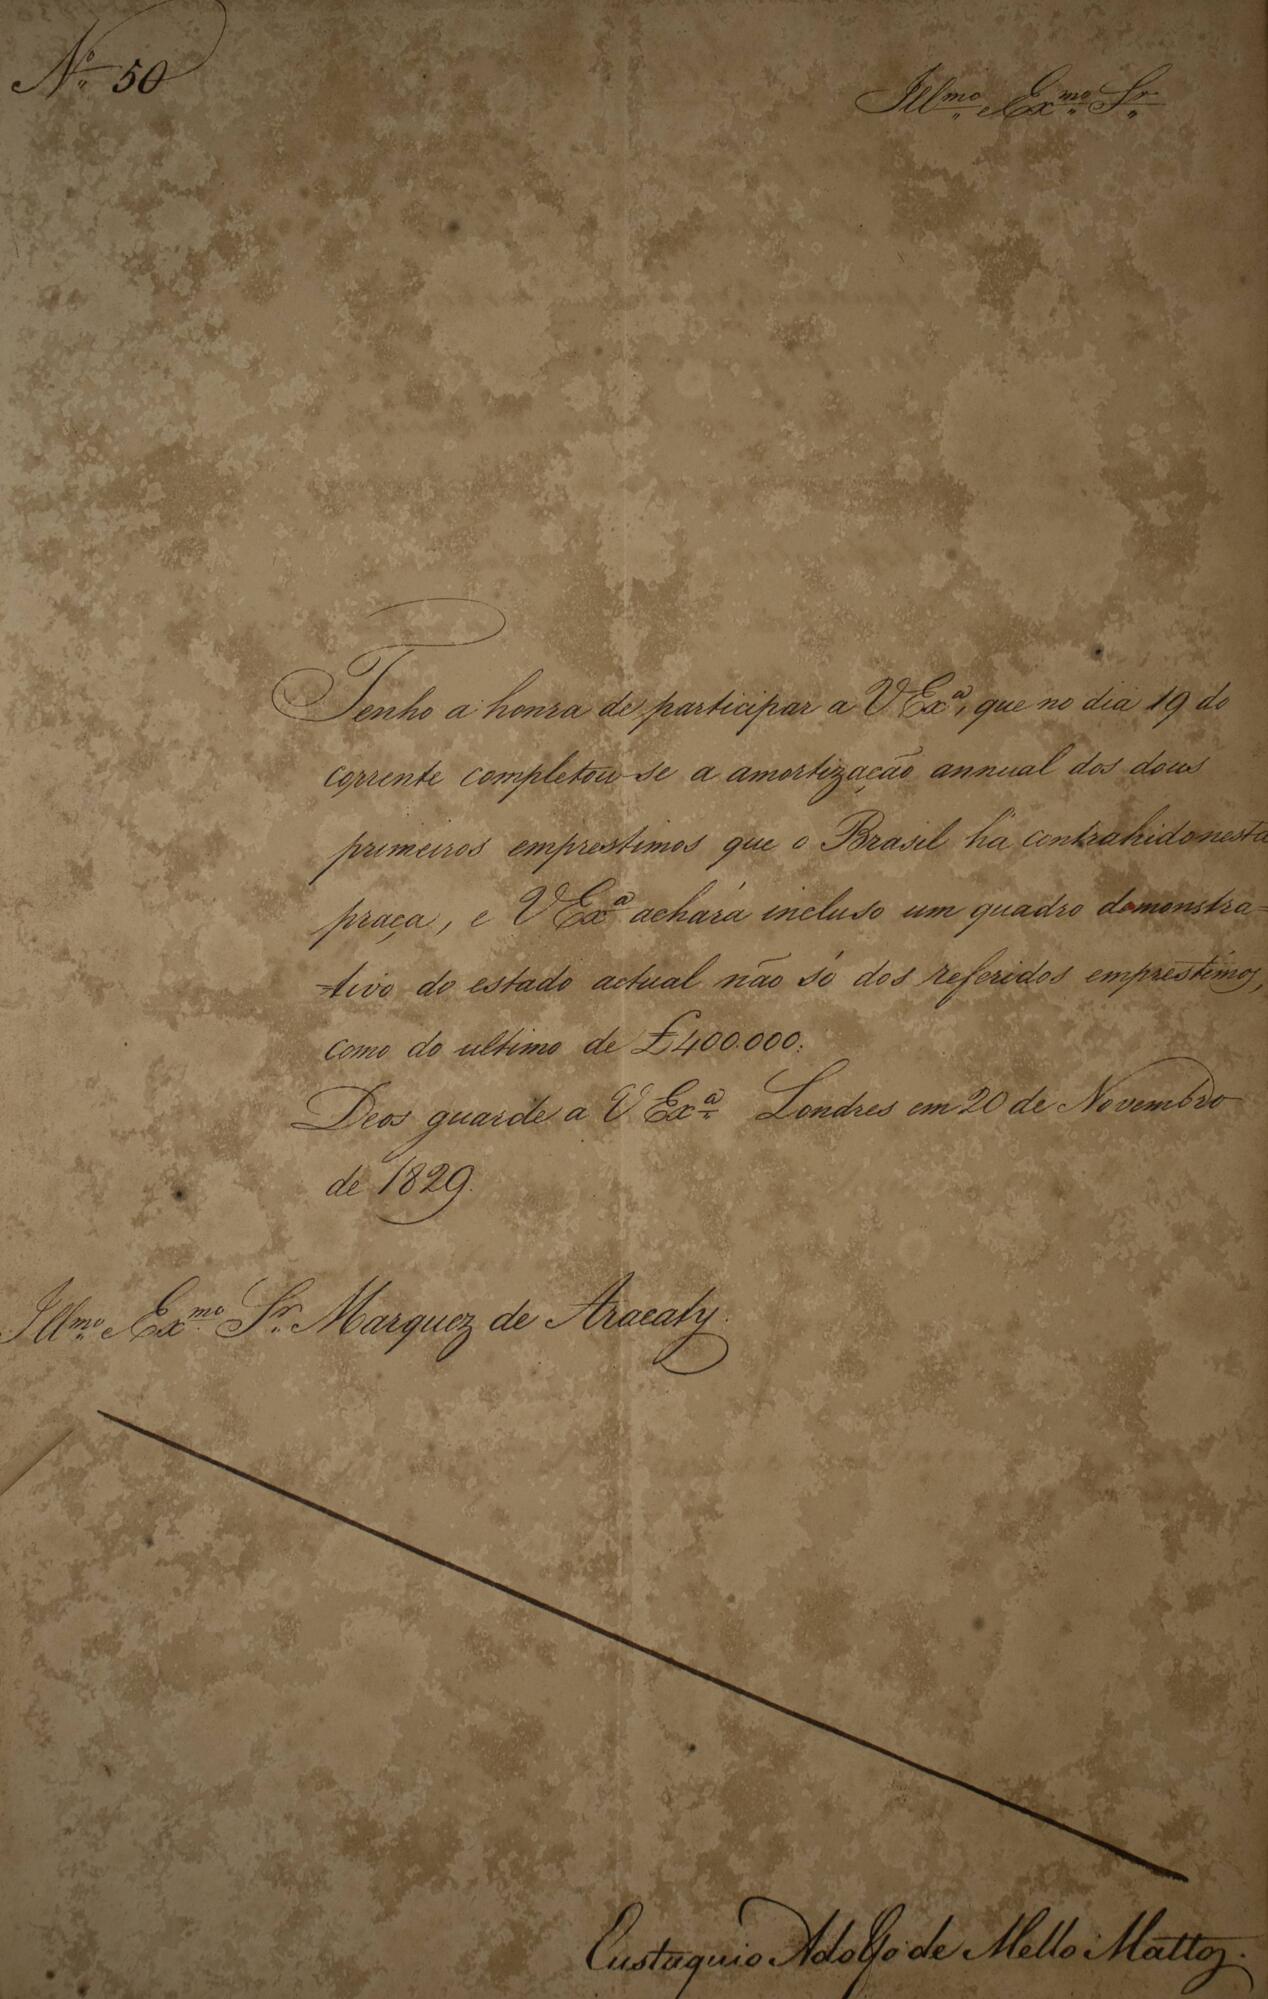 Nº 50
Illmo Exmo Sr
Tenho a honra de participar a V Exª, que no dia 19 do
corrente completou-se a amortização annual dos dous
primeiros emprestimos que o Brasil há contrahido nesta
praça, e V Exª achará incluso um quadro demonstra=
=tivo do estado actual não só dos referidos emprestimos,
como do ultimo de £400.000:
Deos guarde a V Exª Londres em 20 de Novembro
de 1829.
Illmo Exmo Sr Marquez de Aracaty.
Eustaquio Adolfo de Mello Mattos.